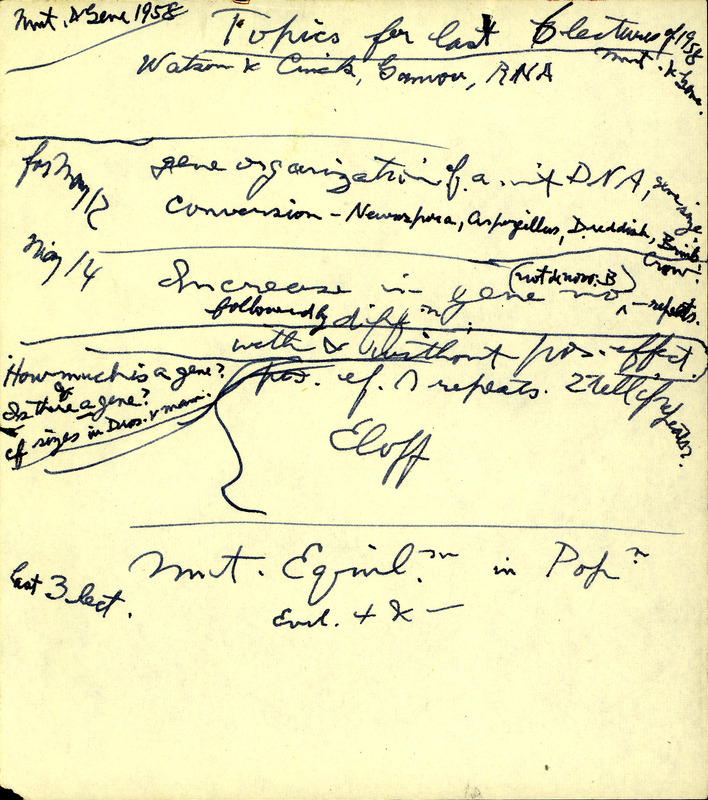 Mut. & Gene 1958
Topics for last 6 lectures of 1958
Mut. & Gene.
Watson & Crick, Gamow, RNA
for May 12
gene organization DNA, gene size
Conversion - Neurospora, Aspergillus,
May 14
Increase in gene no - repeats.
followed by diffn
with & without pos. effect.
How much is a gene?
Is there a gene?
cf sizes in Dros. & mam.
pos. ef. repeats.
Eloff
Last 3 lect.
Mut. Equil. in Popn
Evol. + & -